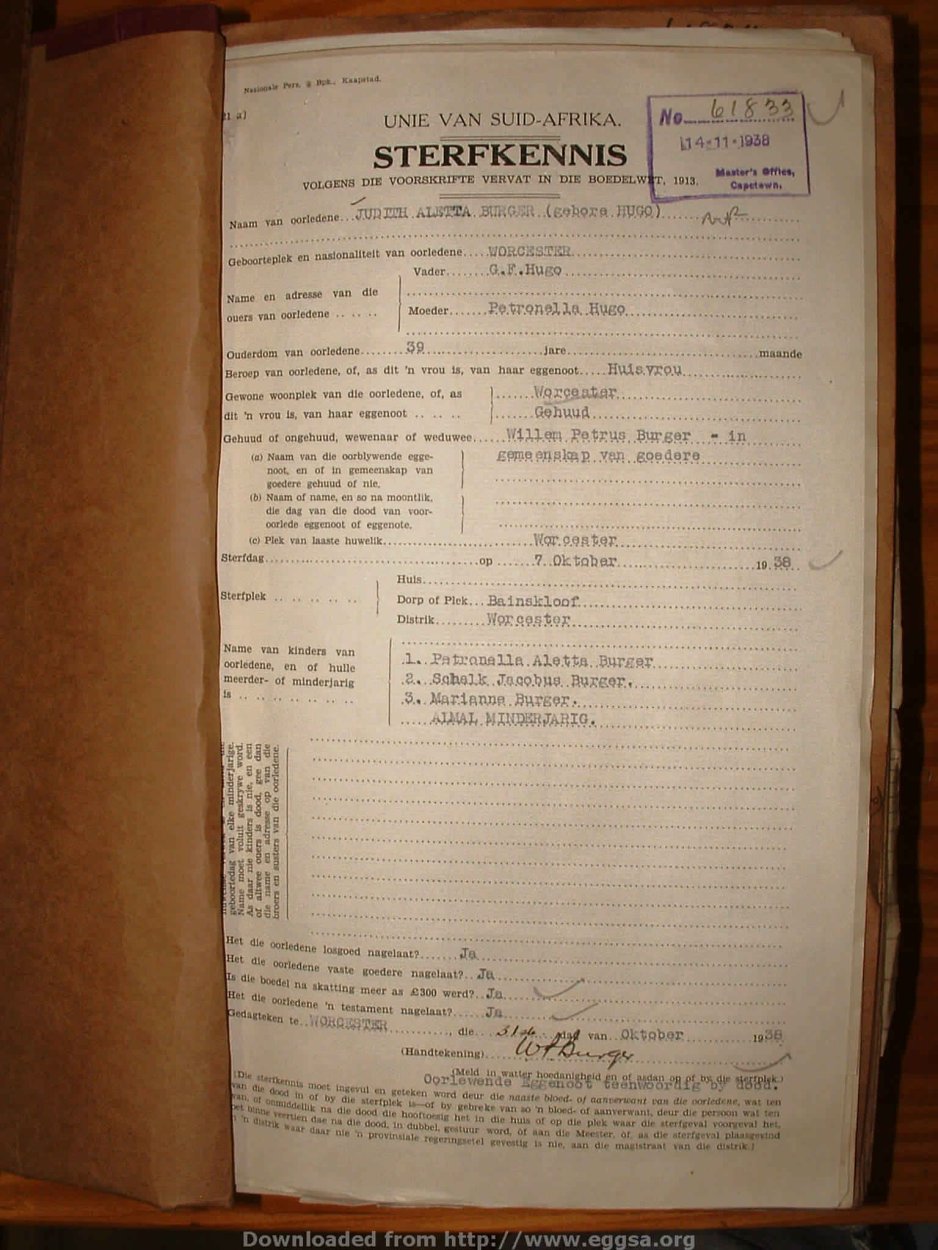 Nasionale Pers. Bpk., Kaapstad.
No. 61833
14-11-1938
Master's Office,
Capetown.
UNIE VAN SUID-AFRIKA.
STERFKENNIS
VOLGENS DIE VOORSKRIFTE VERVAT IN DIE BOEDELWET, 1913.
Naam van oorledene...JUDITH ALETTA BURGER (gebore HUGO)
Geboorteplek en nasionaliteit van oorledene.....WORCESTER
Name en adresse van die ouers van oorledene
Vader........G.F.Hugo
Moeder.......Petronella Hugo
Ouderdom van oorledene.......39.......jare.......maande
Beroep van oorledene, of, as dit 'n vrou is, van haar eggenoot.....Huisvrou
Gewone woonplek van die oorledene, of, as ......Worcester
dit 'n vrou is, van haar eggenoot .. .. .. ......Gehuud
Gehuud of ongehuud, wewenaar of weduwee......Willem Petrus Burger - in
gemeenskap van goedere
(a) Naam van die oorblywende egge-
noot, en of in gemeenskap van
goedere gehuud of nie.
(b) Naam of name, en so na moontlik,
die dag van die dood van voor-
oorlede eggenoot of eggenote.
(c) Plek van laaste huwelik.......Worcester
Sterfdag.......op.......7 Oktober.......19 38
Sterfplek .. .. .. .. .. ..
Huis
Dorp of Plek...Bainskloof
Distrik........Worcester
Name van kinders van
oorledene, en of hulle
meerder- of minderjarig
is .. .. .. .. .. .. ..
1. Petronella Aletta Burger
2. Schalk Jacobus Burger.
3. Marianne Burger.
ALMAL MINDERJARIG.
geboortedag van elke minderjarige.
Name moet voluit geskrywe word.
As daar nie kinders is nie, en een
of altwee ouers is dood, gee dan
die name en adresse op van die
broers en susters van die oorledene.
Het die oorledene losgoed nagelaat?.......Ja
Het die oorledene vaste goedere nagelaat?..Ja
Is die boedel na skatting meer as £300 werd?..Ja
Het die oorledene 'n testament nagelaat?.....Ja
Gedagteken te..WORCESTER.......die...31ste dag van..Oktober.......1938
(Handtekening).....WPBurger
(Meld in watter hoedanigheid en of aadan op of by die sterfplek.)
Oorlewende Eggenoot teenwoordig by dood.
(Die sterfkennis moet ingevul en geteken word deur die naaste bloed- of aanverwant van die oorledene, wat ten
van die dood in of by die sterfplek is—of by gebreke van so 'n bloed- of aanverwant, deur die persoon wat ten
van, of onmiddellik na die dood die hooftoesig het in die huis of op die plek waar die sterfgeval voorgeval het,
moet binne veertien dae na die dood, in dubbel, gestuur word, of aan die Meester, of, as die sterfgeval plaasgevind
'n distrik waar daar nie 'n provinsiale regeringsetel gevestig is nie, aan die magistraat van die distrik.)
Downloaded from http://www.eggsa.org